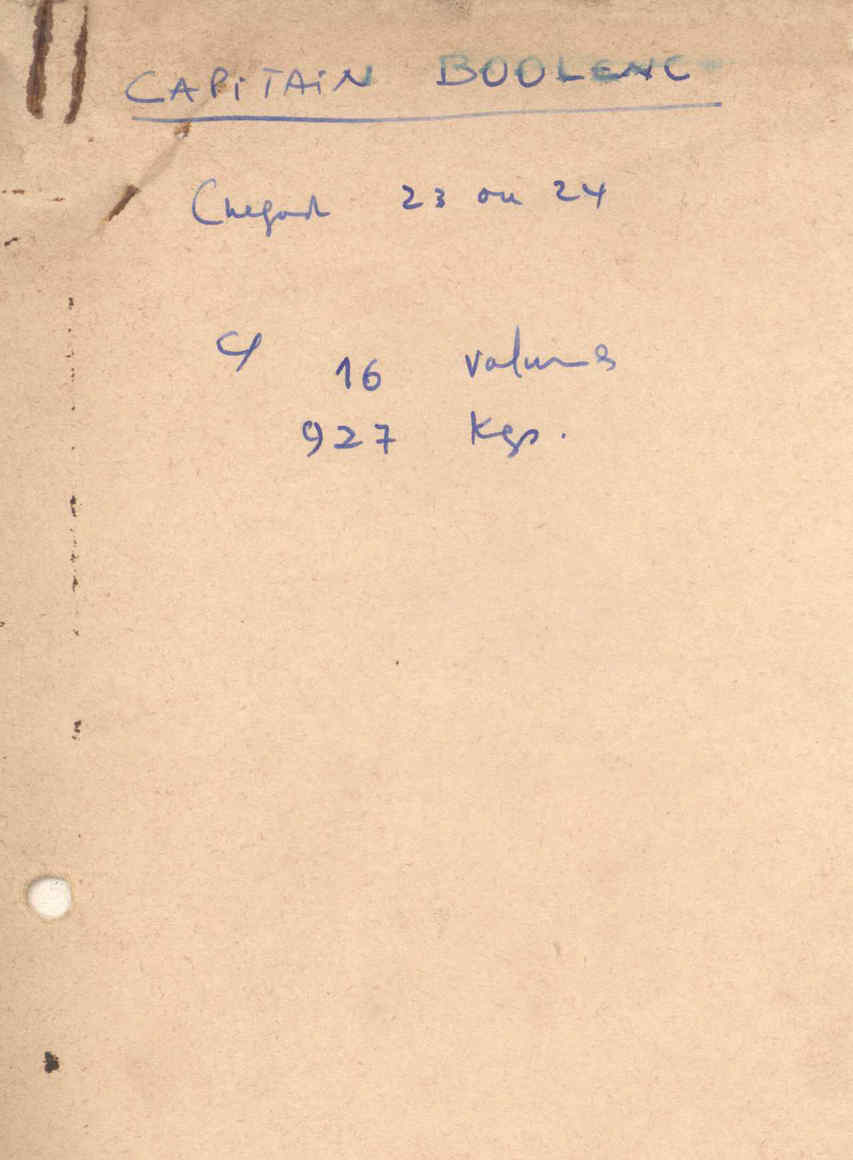 CAPiTAiN BOOLENC
Chegada 23 ou 24
C/ 16 volumes
927 Kgs.